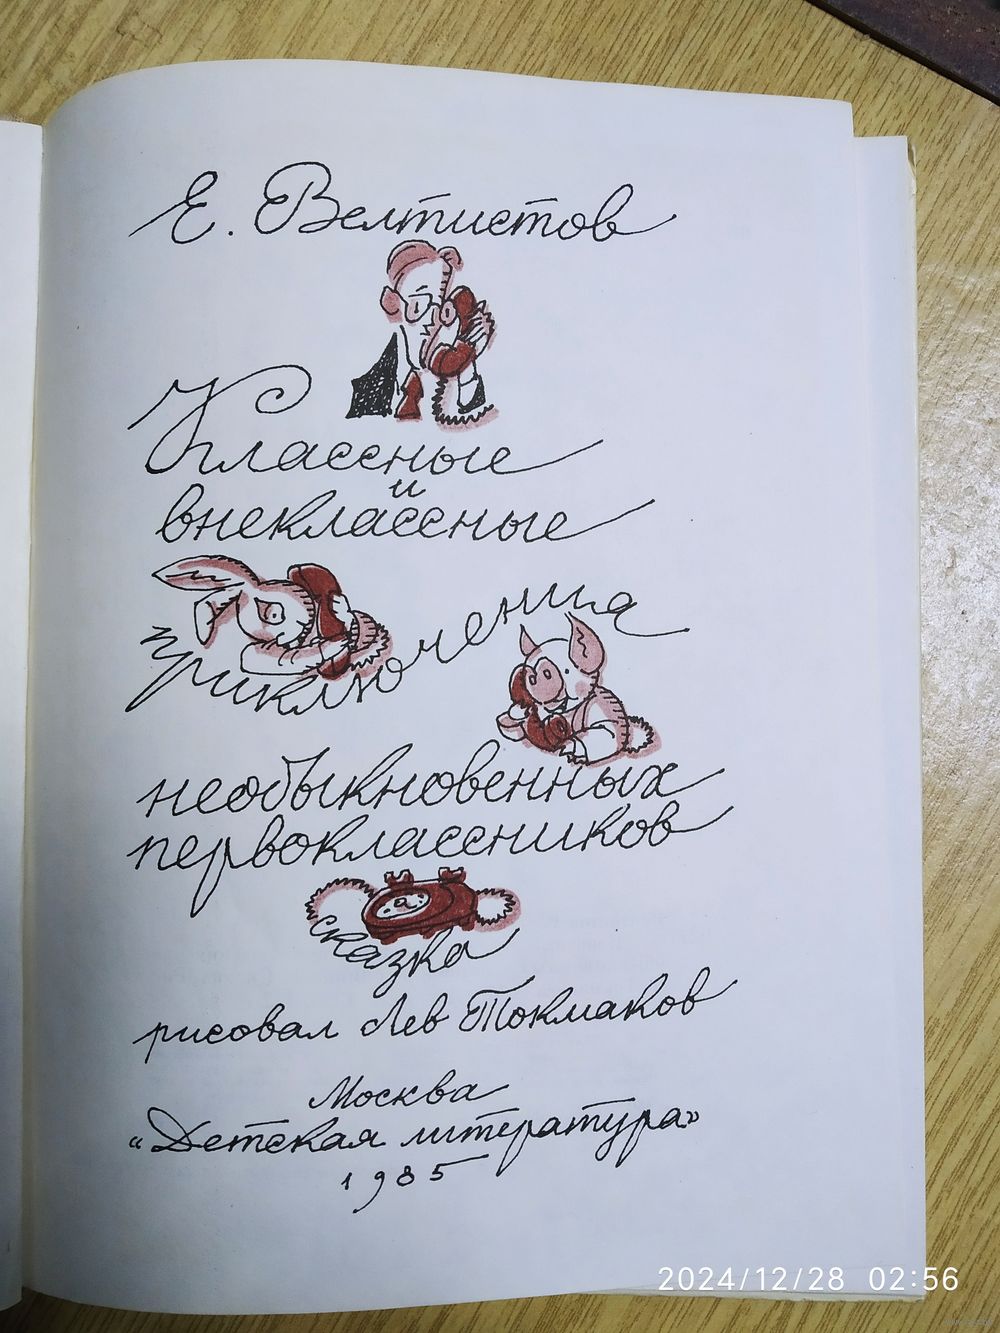 Е. Велтистов
Классные
и
внеклассные
приключения
необыкновенных
первоклассников
сказка
рисовал Лев Токмаков
Москва
«Детская литература»
1985
2024/12/28 02:56